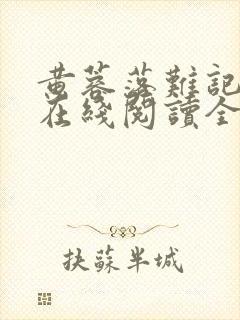 黄蓉落難記
在綫閱讀全
扶蘇半城